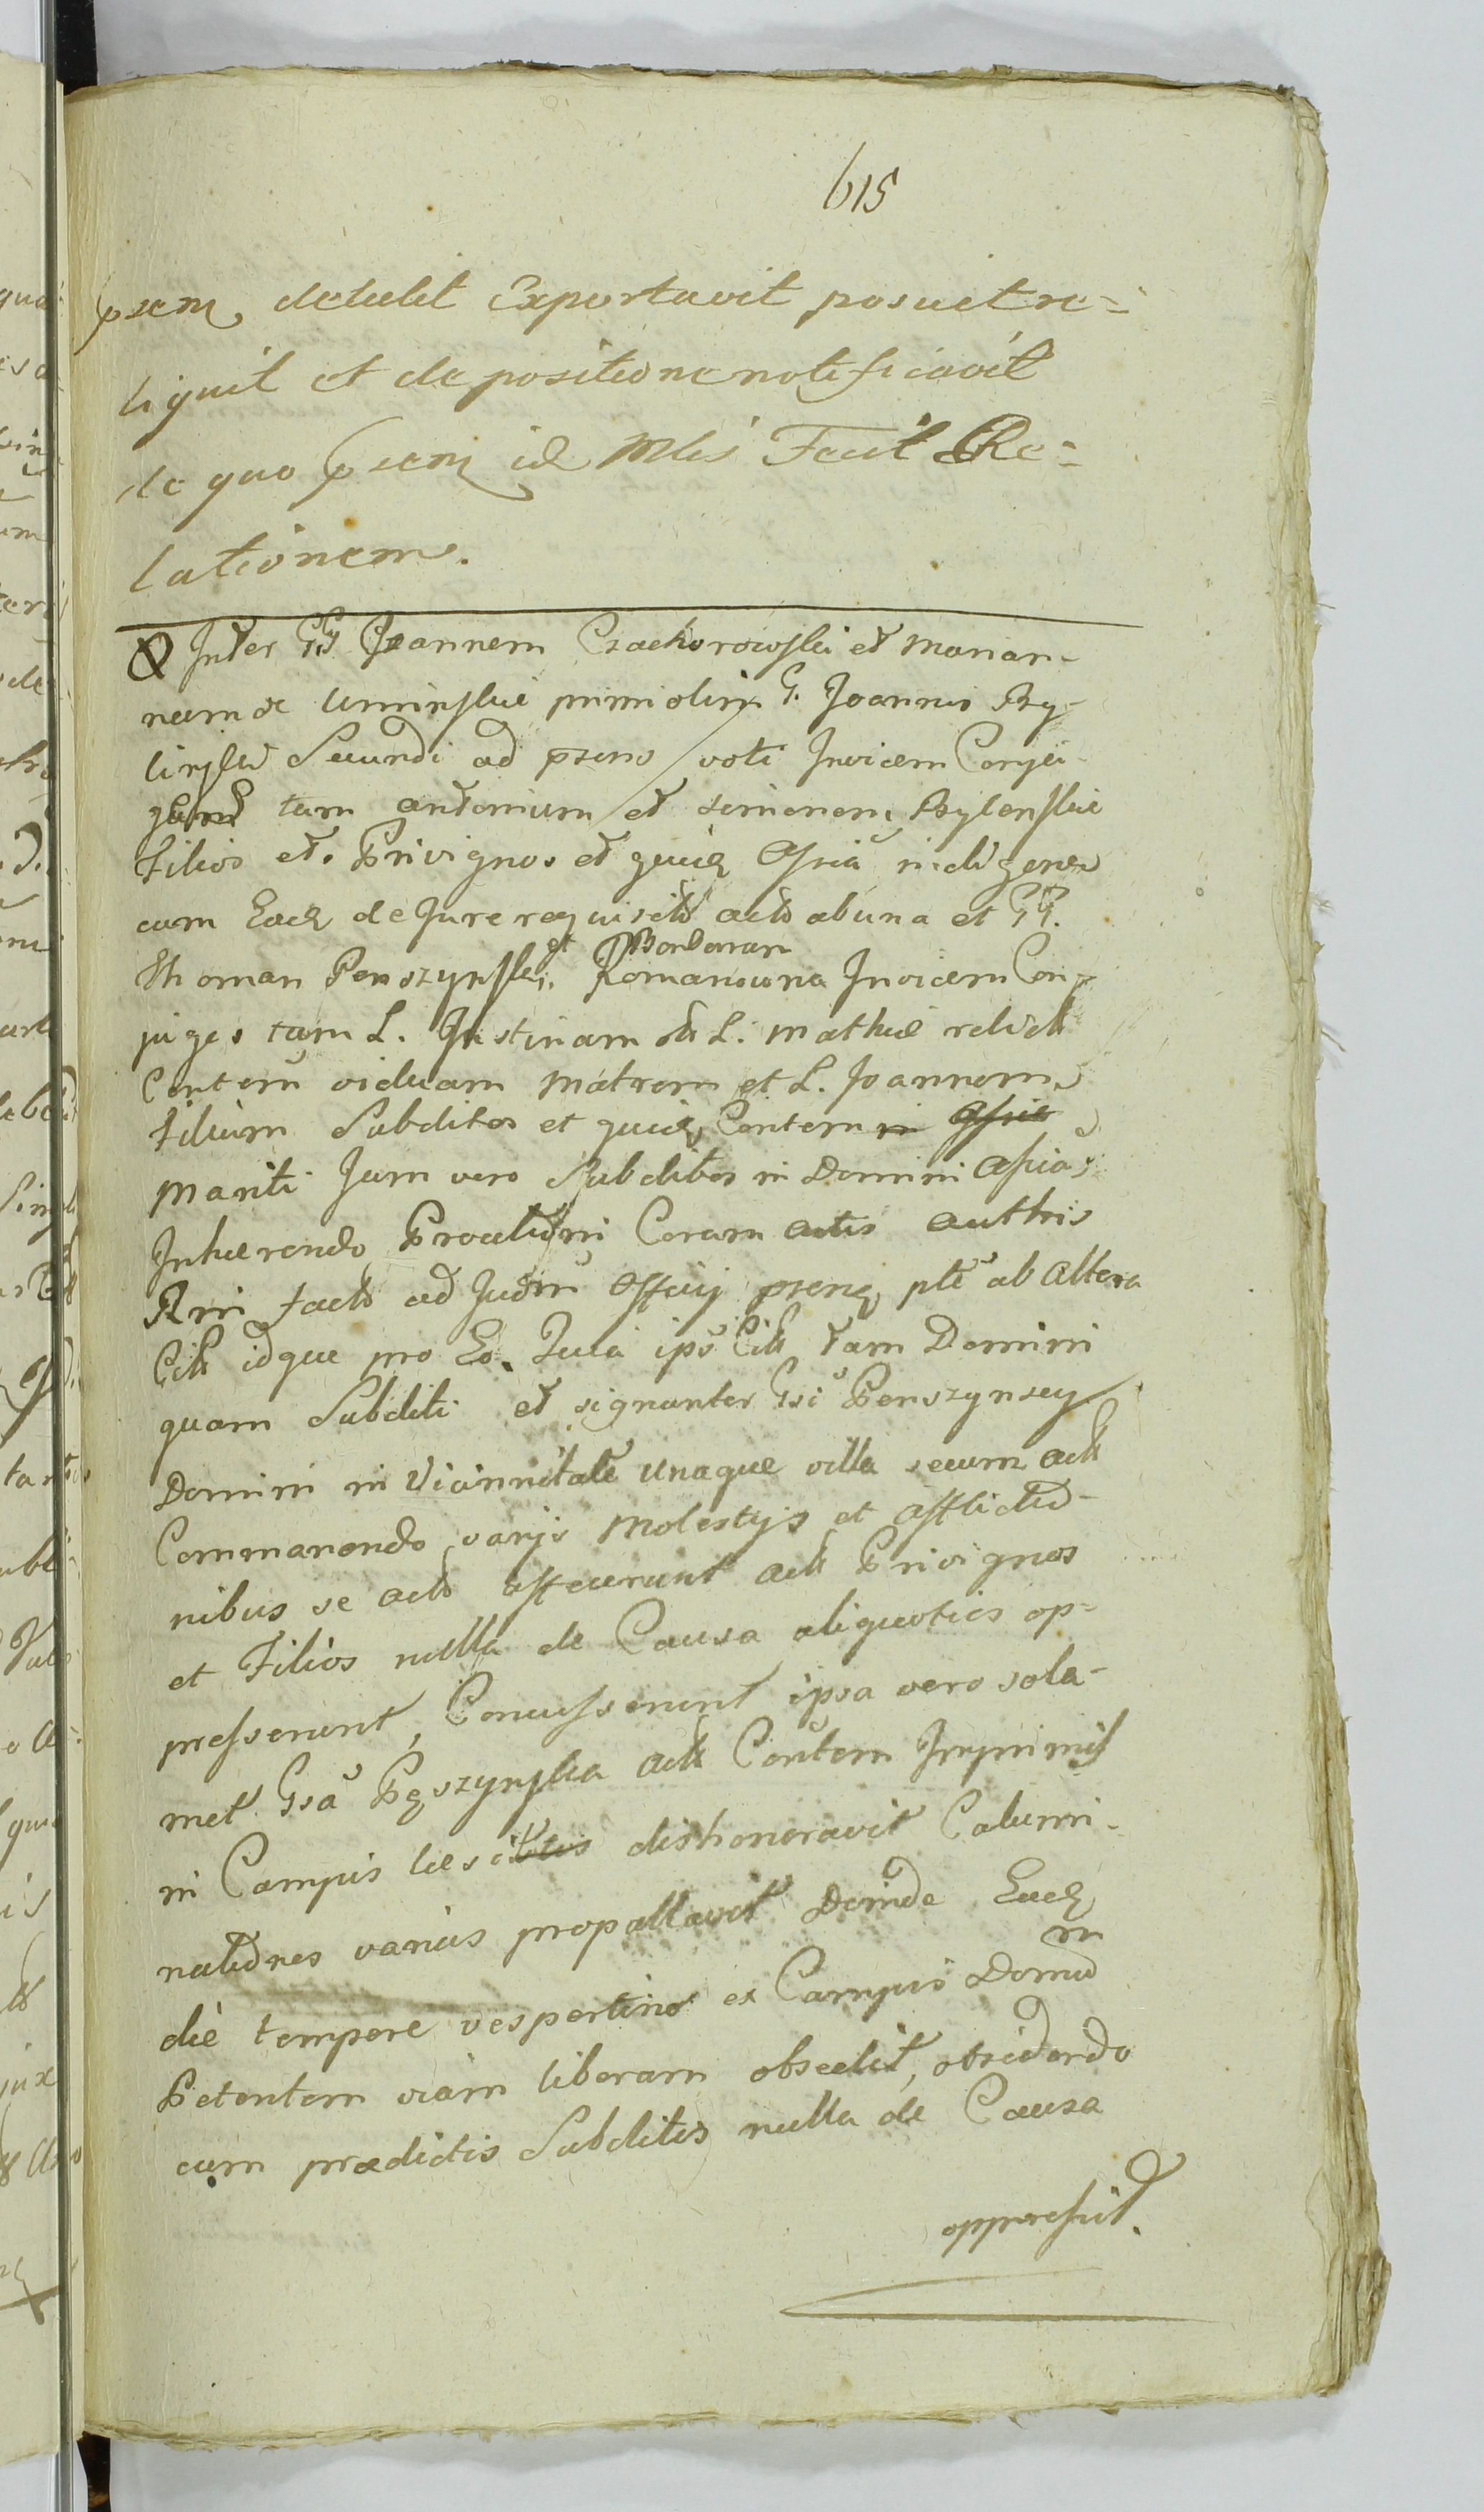 615
psem detulit Exportavit posuit re-
liquit et de positione notificavit
de quo psem id Mlis Fecit Re-
lationem.
Inter GG Joannem Czachorowski et Marian-
nam de Uminskie primi olim G. Joannis Ry-
linski Secundi ad psens voti Invicem Conju-
tam Antonium et Simonem Rylenskie
Filios et Privignos et quud Assia indigenes
cum Ead de Jure requisit act ab una et GG.
Thoman Penszynski et Barbaram Romanowna Invicem Con-
juges tam L. Justinam L. Mathiæ relict
Contem viduam Matrem et L. Joannem
Filium Subditos et quud Contem in Assia
Mariti Jam vero Subditos in Domini Assia
Inhærendo Protlioni Coram actis authis
Rni facto ad Judm Officij pseng pte ab altera
Citt idque pro Eo. Quia ips Citt tam Domini
quam Subditi et signanter Gsi Penszynscy
Domini in Vicinnitate unaque villa secum actt
Commanendo varijs Molestijs et afflictio-
nibus se act affecerunt actt Privignos
et Filios nulla de Causa aliquoties op-
presserunt, Concusserunt ipsa vero sola-
met Gsa Pęszynska actt Contem Inprimis
in Campis dishonoravit Calumi-
nationes varias propallavit Deinde Ead
die tempore vespertino ex Campis Domum
Petentem viam liberam obsedit, obsidendo
cum prædictis Subditis nulla de Causa
oppressit.